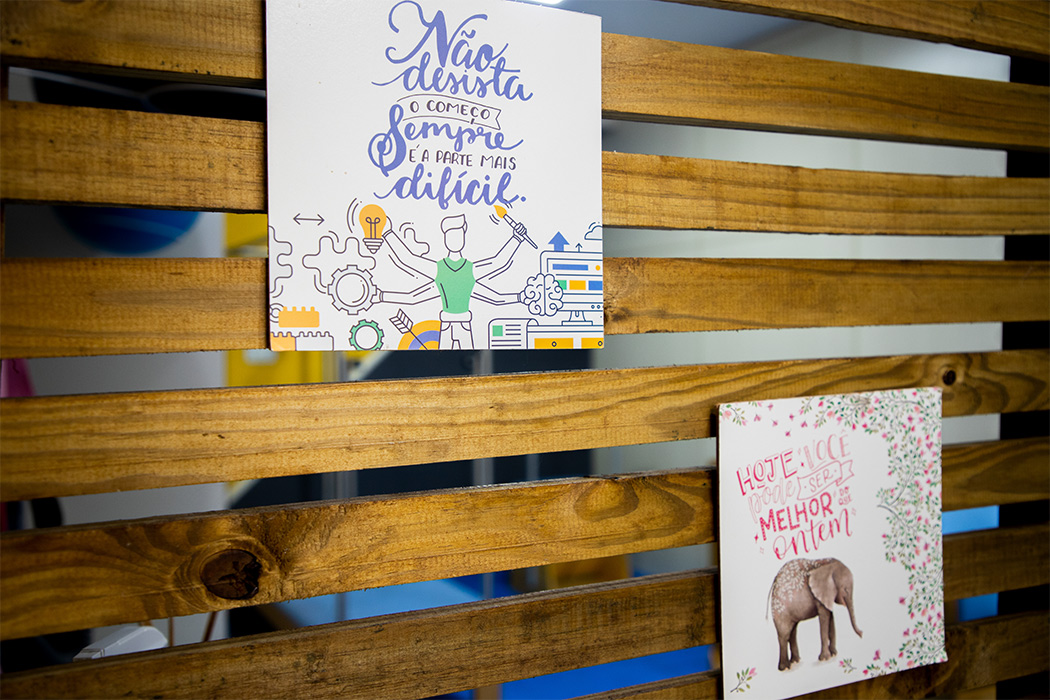 Não
desista
O COMEÇO
Sempre
É A PARTE MAIS
difícil.
HOJE VOCÊ
pode SER
MELHOR DO QUE
ontem